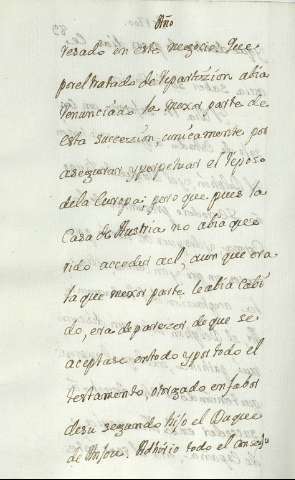 Año
resado en este negocio que
por el tratado de repartazion abia
renunciado la mexor parte de
esta succession, unicamente por
asegurar y perpetuar el reposo
de la Europa; pero que pues la
Casa de Austria no abia que
rido acceder a el, aun que era
la que mexor parte le abia cabi
do, era de parezer de que se
aceptase en todo y por todo el
testamento, otorgado en fabor
de su segundo hijo el Duque
de Anjou. Adhirio todo el consejo